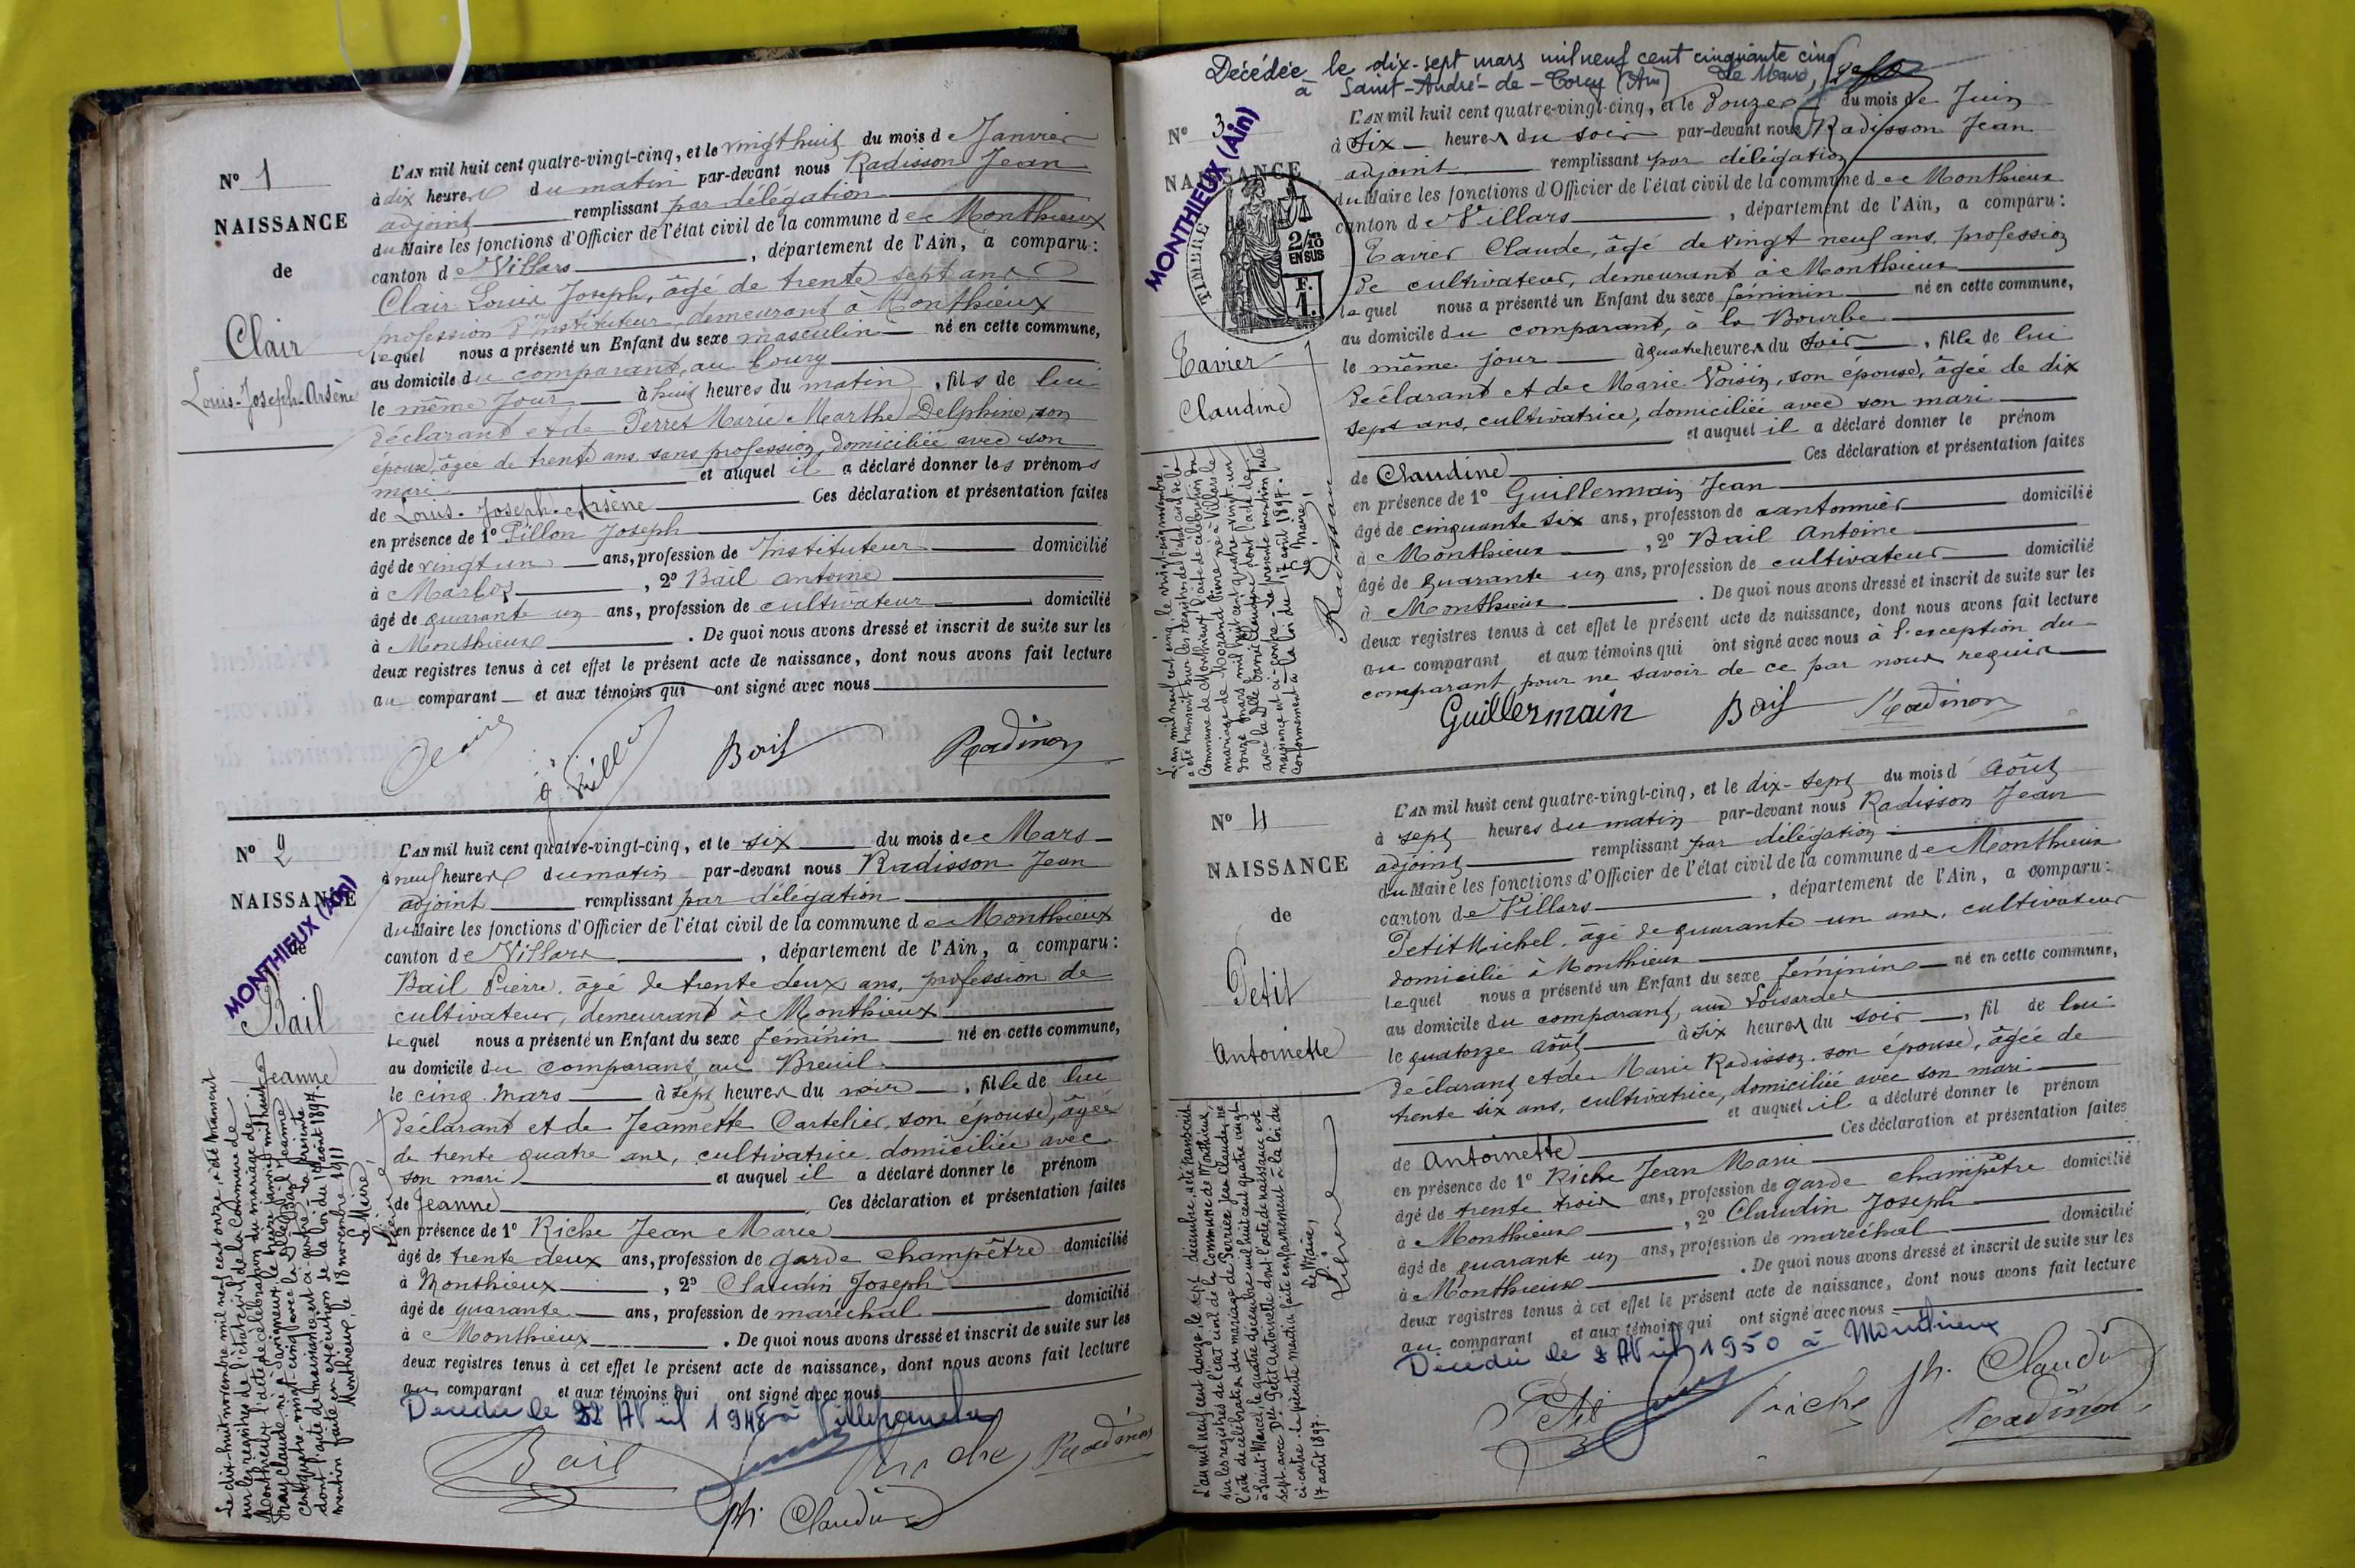 N° 1
NAISSANCE
de
Clair
Louis-Joseph-Arsène
L'AN mil huit cent quatre-vingt-cinq, et le vingt huit du mois de Janvier
à dix heures du matin par-devant nous Radisson Jean
adjoint remplissant par délégation
du Maire les fonctions d'Officier de l'état civil de la commune de Monthieux
canton de Villars, département de l'Ain, a comparu:
Clair Louis Joseph, âgé de trente sept ans
profession d'instituteur, demeurant à Monthieux
lequel nous a présenté un Enfant du sexe masculin né en cette commune,
au domicile du comparant, au bourg
le même jour à huit heures du matin, fils de lui
déclarant et de Perret Marie Marthe Delphine, son
épouse, âgée de trente ans, sans profession, domiciliée avec son
mari et auquel il a déclaré donner les prénoms
de Louis-Joseph-Arsène Ces déclaration et présentation faites
en présence de 1° Pillon Joseph
âgé de vingt un ans, profession de Instituteur domicilié
à , 2° Bail Antoine
âgé de quarante un ans, profession de cultivateur domicilié
à Monthieux. De quoi nous avons dressé et inscrit de suite sur les
deux registres tenus à cet effet le présent acte de naissance, dont nous avons fait lecture
au comparant et aux témoins qui ont signé avec nous
Clair
J. Pillon
Bail
Radisson
N° 2
NAISSANCE
de
MONTHIEUX (Ain)
Bail
Jeanne
L'AN mil huit cent quatre-vingt-cinq, et le six du mois de Mars
à neuf heures du matin par-devant nous Radisson Jean
adjoint remplissant par délégation
du Maire les fonctions d'Officier de l'état civil de la commune de Monthieux
canton de Villars, département de l'Ain, a comparu:
Bail Pierre, âgé de trente deux ans, profession de
cultivateur, demeurant à Monthieux
lequel nous a présenté un Enfant du sexe féminin né en cette commune,
au domicile du comparant, au Breuil
le cinq mars à sept heures du soir, fille de lui
déclarant et de Jeannette Cartelier, son épouse, âgée
de trente quatre ans, cultivatrice, domiciliée avec
son mari et auquel il a déclaré donner le prénom
de Jeanne Ces déclaration et présentation faites
en présence de 1° Riche Jean Marie
âgé de trente deux ans, profession de garde champêtre domicilié
à Monthieux, 2° Claudin Joseph
âgé de quarante ans, profession de maréchal domicilié
à Monthieux. De quoi nous avons dressé et inscrit de suite sur les
deux registres tenus à cet effet le présent acte de naissance, dont nous avons fait lecture
au comparant et aux témoins qui ont signé avec nous
Décédée le 22 Avril 1948 à Villefranche
Bail
Riche
Radisson
Ph. Claudin
Le dix-huit novembre mil neuf cent onze, a été transcrit
sur les registres de l'état civil de la Commune de
Monthieux l'acte de célébration du mariage de
Claude, né à Savigneux le
cent quatre-vingt-cinq avec la Dlle Bail Jeanne
dont l'acte de naissance est ci-contre. La présente
mention faite en exécution de la loi du 17 août 1897
Monthieux, le 18 novembre 1911
Le Maire,
Décédée le dix-sept mars mil neuf cent cinquante cinq
à Saint-André-de-Corcy (Ain) Le Maire,
N° 3
NAISSANCE
de
MONTHIEUX (Ain)
TIMBRE
2/10
EN SUS
F.
1.
Tavier
Claudine
L'AN mil huit cent quatre-vingt-cinq, et le douze du mois de Juin
à six heures du soir par-devant nous Radisson Jean
adjoint remplissant par délégation
du Maire les fonctions d'Officier de l'état civil de la commune de Monthieux
canton de Villars, département de l'Ain, a comparu:
Tavier Claude, âgé de vingt neuf ans, profession
de cultivateur, demeurant à Monthieux
lequel nous a présenté un Enfant du sexe féminin né en cette commune,
au domicile du comparant, à la Bourbe
le même jour à quatre heures du soir, fille de lui
déclarant et de Marie Voisin, son épouse, âgée de dix
sept ans, cultivatrice, domiciliée avec son mari
et auquel il a déclaré donner le prénom
de Claudine Ces déclaration et présentation faites
en présence de 1° Guillermain Jean
âgé de cinquante six ans, profession de cantonnier domicilié
à Monthieux, 2° Bail Antoine
âgé de quarante un ans, profession de cultivateur domicilié
à Monthieux. De quoi nous avons dressé et inscrit de suite sur les
deux registres tenus à cet effet le présent acte de naissance, dont nous avons fait lecture
au comparant et aux témoins qui ont signé avec nous à l'exception du
comparant, pour ne savoir de ce par nous requis
Guillermain
Bail
Radisson
L'an mil neuf cent cinq, le vingt-six novembre,
a été transcrit sur les registres de l'état civil de la
Commune de Monthieux l'acte de célébration du
mariage de Pierre né à Villars le
douze mars mil huit cent quatre-vingt-un
avec la Dlle Claudine dont l'acte de
naissance est ci-contre. La présente mention faite
conformément à la loi du 17 août 1897.
Le Maire,
Radisson
N° 4
NAISSANCE
de
Petit
Antoinette
L'AN mil huit cent quatre-vingt-cinq, et le dix-sept du mois d'Août
à sept heures du matin par-devant nous Radisson Jean
adjoint remplissant par délégation
du Maire les fonctions d'Officier de l'état civil de la commune de Monthieux
canton de Villars, département de l'Ain, a comparu:
Petit Michel, âgé de quarante un ans, cultivateur
domicilié à Monthieux
lequel nous a présenté un Enfant du sexe féminin né en cette commune,
au domicile du comparant, aux
le quatorze août à six heures du soir, fil de lui
déclarant et de Marie Radisson, son épouse, âgée de
trente six ans, cultivatrice, domiciliée avec son mari
et auquel il a déclaré donner le prénom
de Antoinette Ces déclaration et présentation faites
en présence de 1° Riche Jean Marie
âgé de trente trois ans, profession de garde champêtre domicilié
à Monthieux, 2° Claudin Joseph
âgé de quarante un ans, profession de maréchal domicilié
à Monthieux. De quoi nous avons dressé et inscrit de suite sur les
deux registres tenus à cet effet le présent acte de naissance, dont nous avons fait lecture
au comparant et aux témoins qui ont signé avec nous
Décédée le 8 Avril 1950 à Monthieux
Petit
Riche
Ph. Claudin
Radisson
L'an mil neuf cent douze le sept décembre, a été transcrit
sur les registres de l'état civil de la Commune de Monthieux,
l'acte de célébration du mariage de Perrier Jean Claude, né
à Saint-Marcel le quatre décembre mil huit cent quatre vingt
sept avec Dlle Petit Antoinette dont l'acte de naissance est
ci-contre. La présente mention faite conformément à la loi du
17 août 1897.
Le Maire,